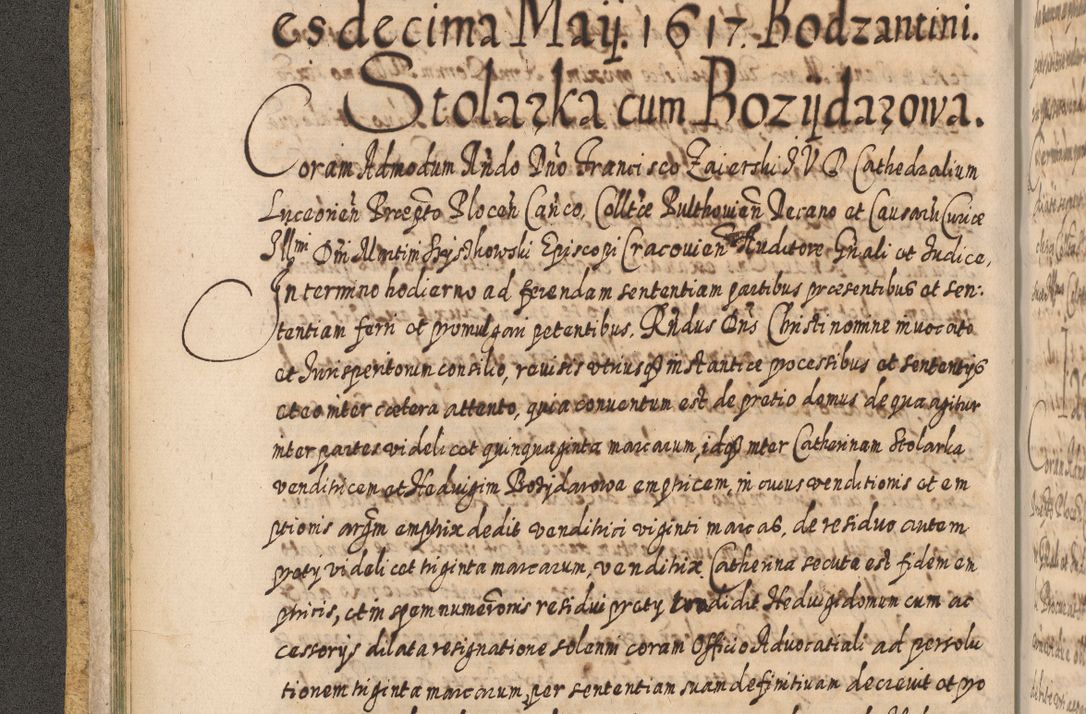 es decima Maij. 1617. Bodzantini.
Stolarzka cum Bozijdarowa.
Coram Admodum Rńdo Dńo Francisco Zaierski I V D Cathedralium
Lyceorień Praepto Ploceń Cańco, Colltae Pulthovień Decano et Causarū Curiae
Illmi Dńi Martini Szyszkowski Episcopi Cracovień Auditore Gńali et Iudice,
In termino hodierno ad ferendam sententiam partibus praesentibus et sen:
tentiam ferri et promulgari petentibus. Rńdus Dńs Christi nomine invocato
et Iurisperitorum consilio, revisis utriusqʒ instantiae processibus et sententijs
et eo inter caetera attento, quia conventum est de pretio domus de qua agitur
inter partes videlicet quinquaginta marcarum, idqʒ inter Catherinam Stolarka
venditricem et Hedvigim Bozydarowa emptricem, in cuius venditionis et em
ptionis argm emptrix dedit venditrici viginti marcas, de residuo autem
prety videlicet triginta marcarum, venditrix Catherina secuta est fidem em
ptricis, et in spem numerōnis residui prety tradidit Hedvigi domum cum ac
cessorijs dilata resignatione solenni coram Officio Advocatiali ad persolu
tionem triginta marcarum, per sententiam suam definitivam decrevit et pro